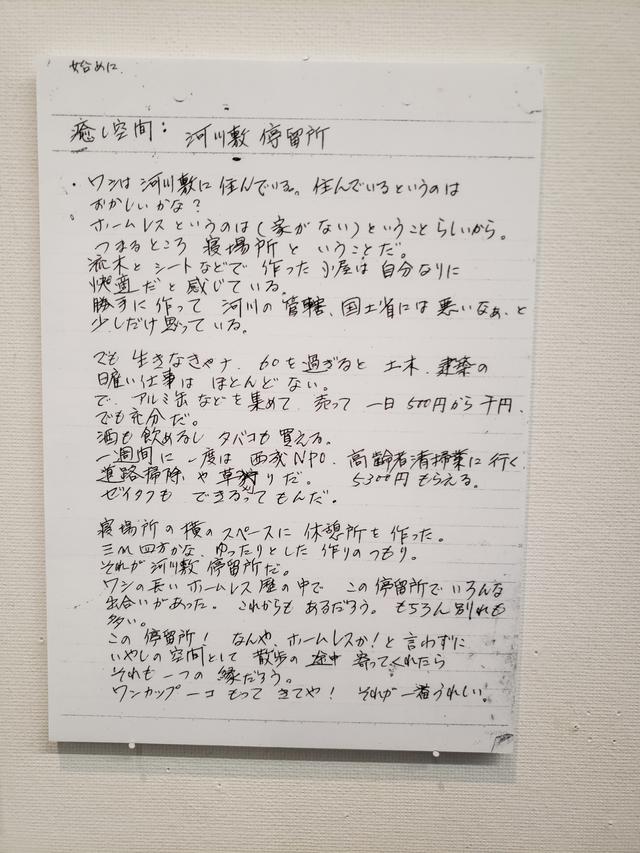 始めに
癒し空間： 河川敷 停留所
・ワシは 河川敷に 住んでいる。住んでいるというのは
おかしいかな？
ホームレスというのは（家がない）ということらしいから。
つまるところ 寝場所 と いうことだ。
流木と シートなどで 作った 小屋は 自分なりに
快適だと 感じている。
勝手に 作って 河川の 管轄、国土省には 悪いなぁ、と
少しだけ思っている。
でも 生きなきゃナ、60を過ぎると 土木、建築の
日雇い仕事は ほとんどない。
で、アルミ缶などを集めて、売って 一日 500円から 千円、
でも充分だ。
酒も 飲めるし タバコも 買える。
一週間に 一度は 西成NPO、高齢者清掃業に 行く、
道路掃除 や 草狩りだ。 5300円 もらえる。
ゼイタクも できるってもんだ。
寝場所の横のスペースに 休憩所を作った。
三m四方かな、ゆったりとした 作りのつもり。
それが 河川敷 停留所だ。
ワシの長い ホームレス 歴の中で この停留所で いろんな
出合いがあった。 これからも あるだろう。もちろん 別れも
多い。
この 停留所！ なんや、ホームレスか！と 言わずに
いやしの空間として 散歩の 途中 寄ってくれたら
それも 一つの 縁だろう。
ワンカップ 一コ もって きてや！ それが 一番うれしい。